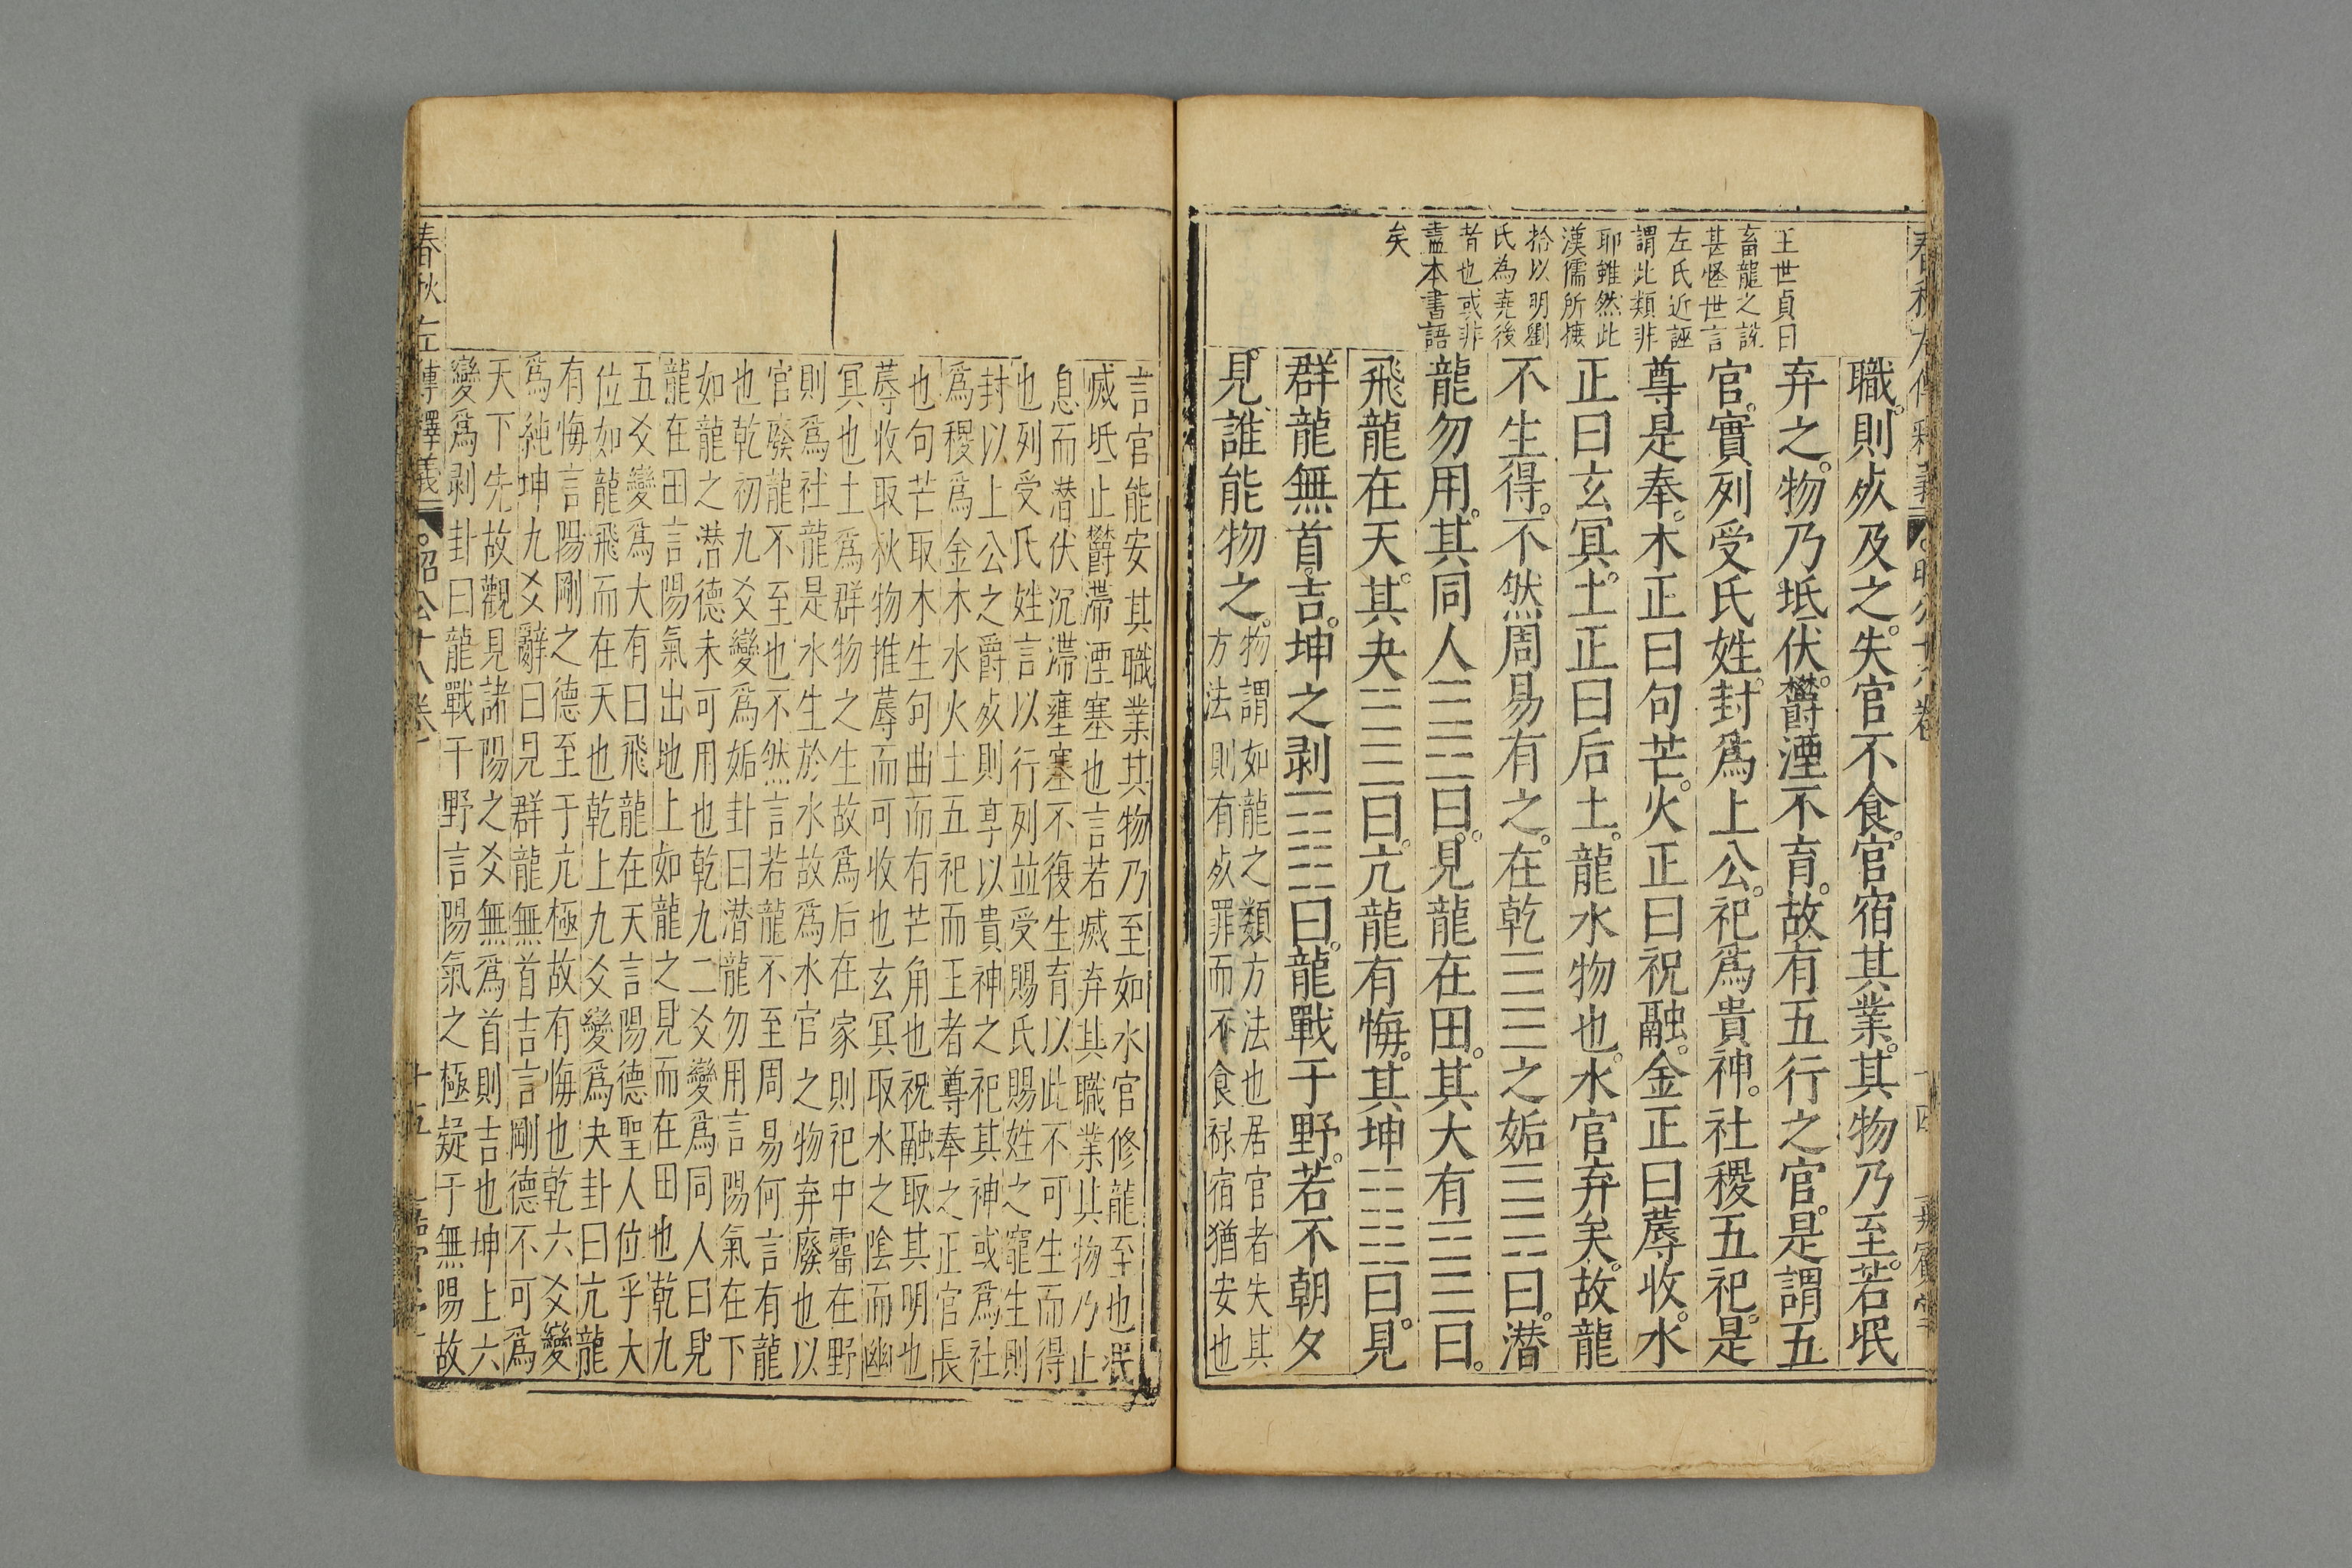 王世貞曰
畜龍之說
甚怪世言
左氏近誣
謂此類非
耶雖然此
漢儒所摭
拾以明劉
氏為堯後
者也或非
盡本書語
矣
職。則死及之。失官不食。官宿其業。其物乃至。若泯
弃之。物乃坻伏。欝湮不育。故有五行之官。是謂五
官。實列受氏姓。封爲上公。祀爲貴神。社稷五祀。是
尊是奉。木正曰句芒。火正曰祝融。金正曰蓐收。水
正曰玄冥。土正曰后土。龍水物也。水官弃矣。故龍
不生得。不然周易有之。在乾☰☰之姤☰☴曰。潛
龍勿用。其同人☰☲曰。見龍在田。其大有☲☰曰。
飛龍在天。其夬☱☰曰。亢龍有悔。其坤☷☷曰。見
群龍無首。吉。坤之剥☶☷曰。龍戰于野。若不朝夕
見。誰能物之。物謂如龍之類方法也居官者失其
方法則有死罪而不食祿宿猶安也
言官能安其職業其物乃至如水官修龍至也泯
滅坻止欝滯湮塞也言若滅弃其職業其物乃止
息而潜伏沉滯壅塞不復生育以此不可生而得
也列受氏姓言以行列並受賜氏賜姓之寵生則
封以上公之爵死則享以貴神之祀其神或爲社
爲稷爲金木水火土五祀而王者尊奉之正官長
也句芒取木生句曲而有芒角也祝融取其明也
蓐收取秋物推蓐而可收也玄冥取水之陰而幽
冥也土爲群物之生故爲后在家則祀中霤在野
則爲社龍是水生於水故爲水官之物弃廢也以
官廢龍不至也不然言若龍不至周易何言有龍
也乾初九爻變爲姤卦曰潜龍勿用言陽氣在下
如龍之潜德未可用也乾九二爻變爲同人曰見
龍在田言陽氣出地上如龍之見而在田也乾九
五爻變爲大有曰飛龍在天言陽德聖人位乎大
位如龍飛而在天也乾上九爻變爲夬卦曰亢龍
有悔言陽剛之德至于亢極故有悔也乾六爻變
爲純坤九爻辭曰見群龍無首吉言剛德不可爲
天下先故觀見諸陽之爻無爲首則吉也坤上六
變爲剥卦曰龍戰于野言陽氣之極疑于無陽故
春秋左傳釋義 昭公十八卷 十五